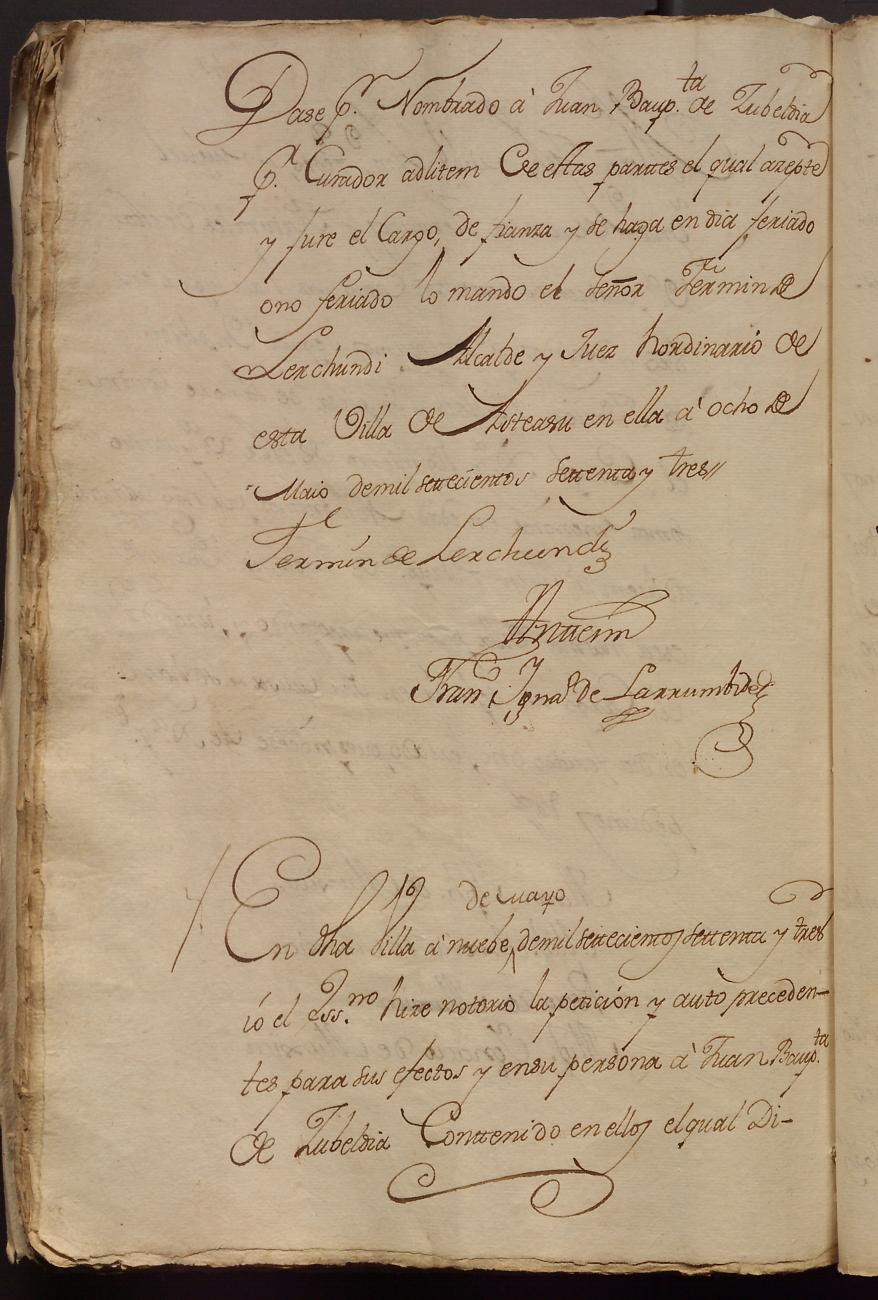 Dase p.r Nombrado à Juan Baup.ta de Zubeldia
p.r Curador adlitem de esttas parttes el qual azepte
y jure el Cargo, de fianza y se haga en dia feriado
ono feriado lo mando el señor Fermin de
Lerchundi Alcalde y Juez hordinario de
esta Villa de Asteasu en ella à ocho de
Maio demil settecienttos settenta y tres//
Fermín de Lerchundi
Antte mi
Fran.co Ygna.o de Larrumbide
de mayo
En dha Villa à nuebe, demil settecienttos settenta y tres
ió el Ess.no hize notorio la petición y auto preceden-
tes para sus efectos y ensu persona à Juan Baup.ta
de Zubeldia Conttenido en ellos el qual Di-